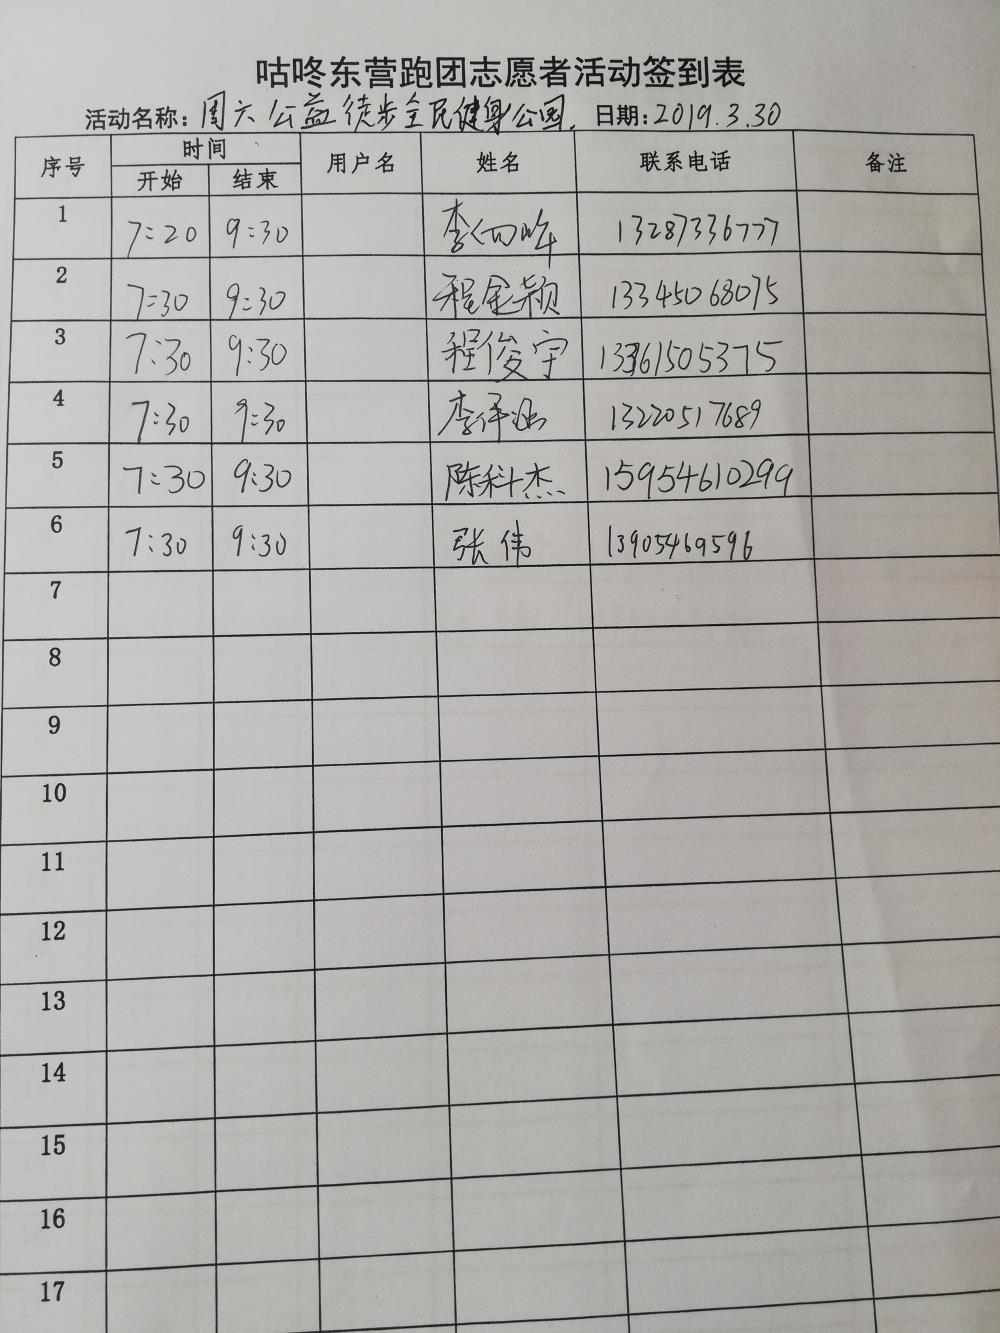 咕咚东营跑团志愿者活动签到表
活动名称：周六公益徒步全民健身公园. 日期：2019.3.30
序号 时间 用户名 姓名 联系电话 备注
开始 结束
1 7:20 9:30 李 13287336777
2 7:30 9:30 程金颖 13345068075
3 7:30 9:30 程俊宇 13361505375
4 7:30 9:30 李 13220517689
5 7:30 9:30 陈科杰 15954610299
6 7:30 9:30 张伟 13905469596
7
8
9
10
11
12
13
14
15
16
17